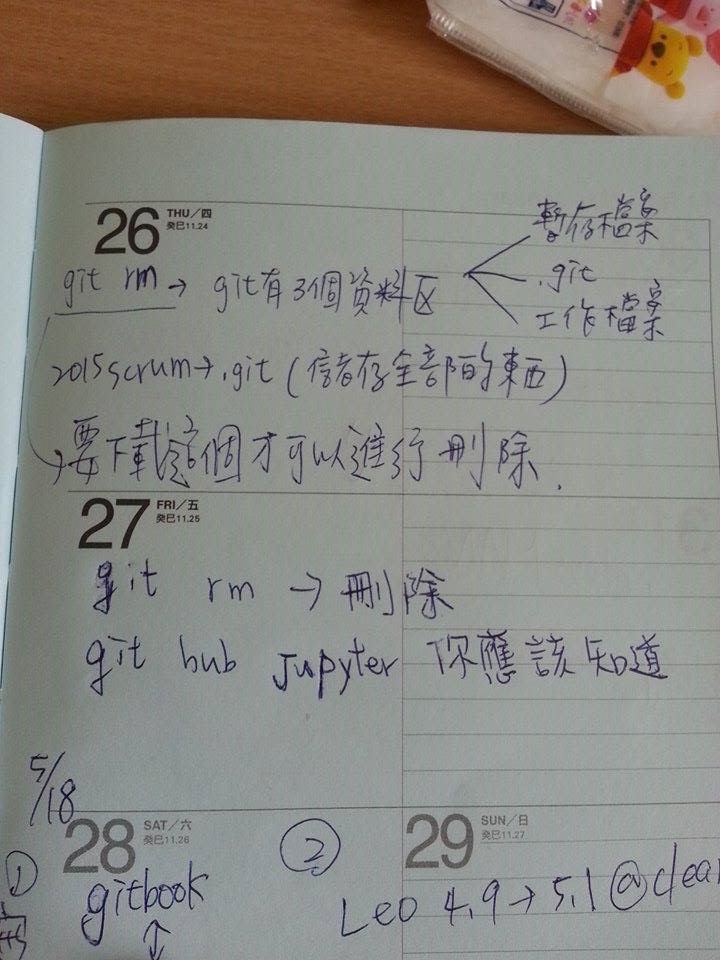 26 THU／四
癸巳11.24
暫存檔案
git rm → git有3個資料区
.git
工作檔案
2015scrum→.git (儲存全部的東西)
→要下載這個才可以進行刪除.
27 FRI／五
癸巳11.25
git rm → 刪除
git hub Jupyter 你應該知道
5/18
28 SAT／六
癸巳11.26
②
29 SUN／日
癸巳11.27
①
gitbook
Leo 4.9 → 5.1 @clear